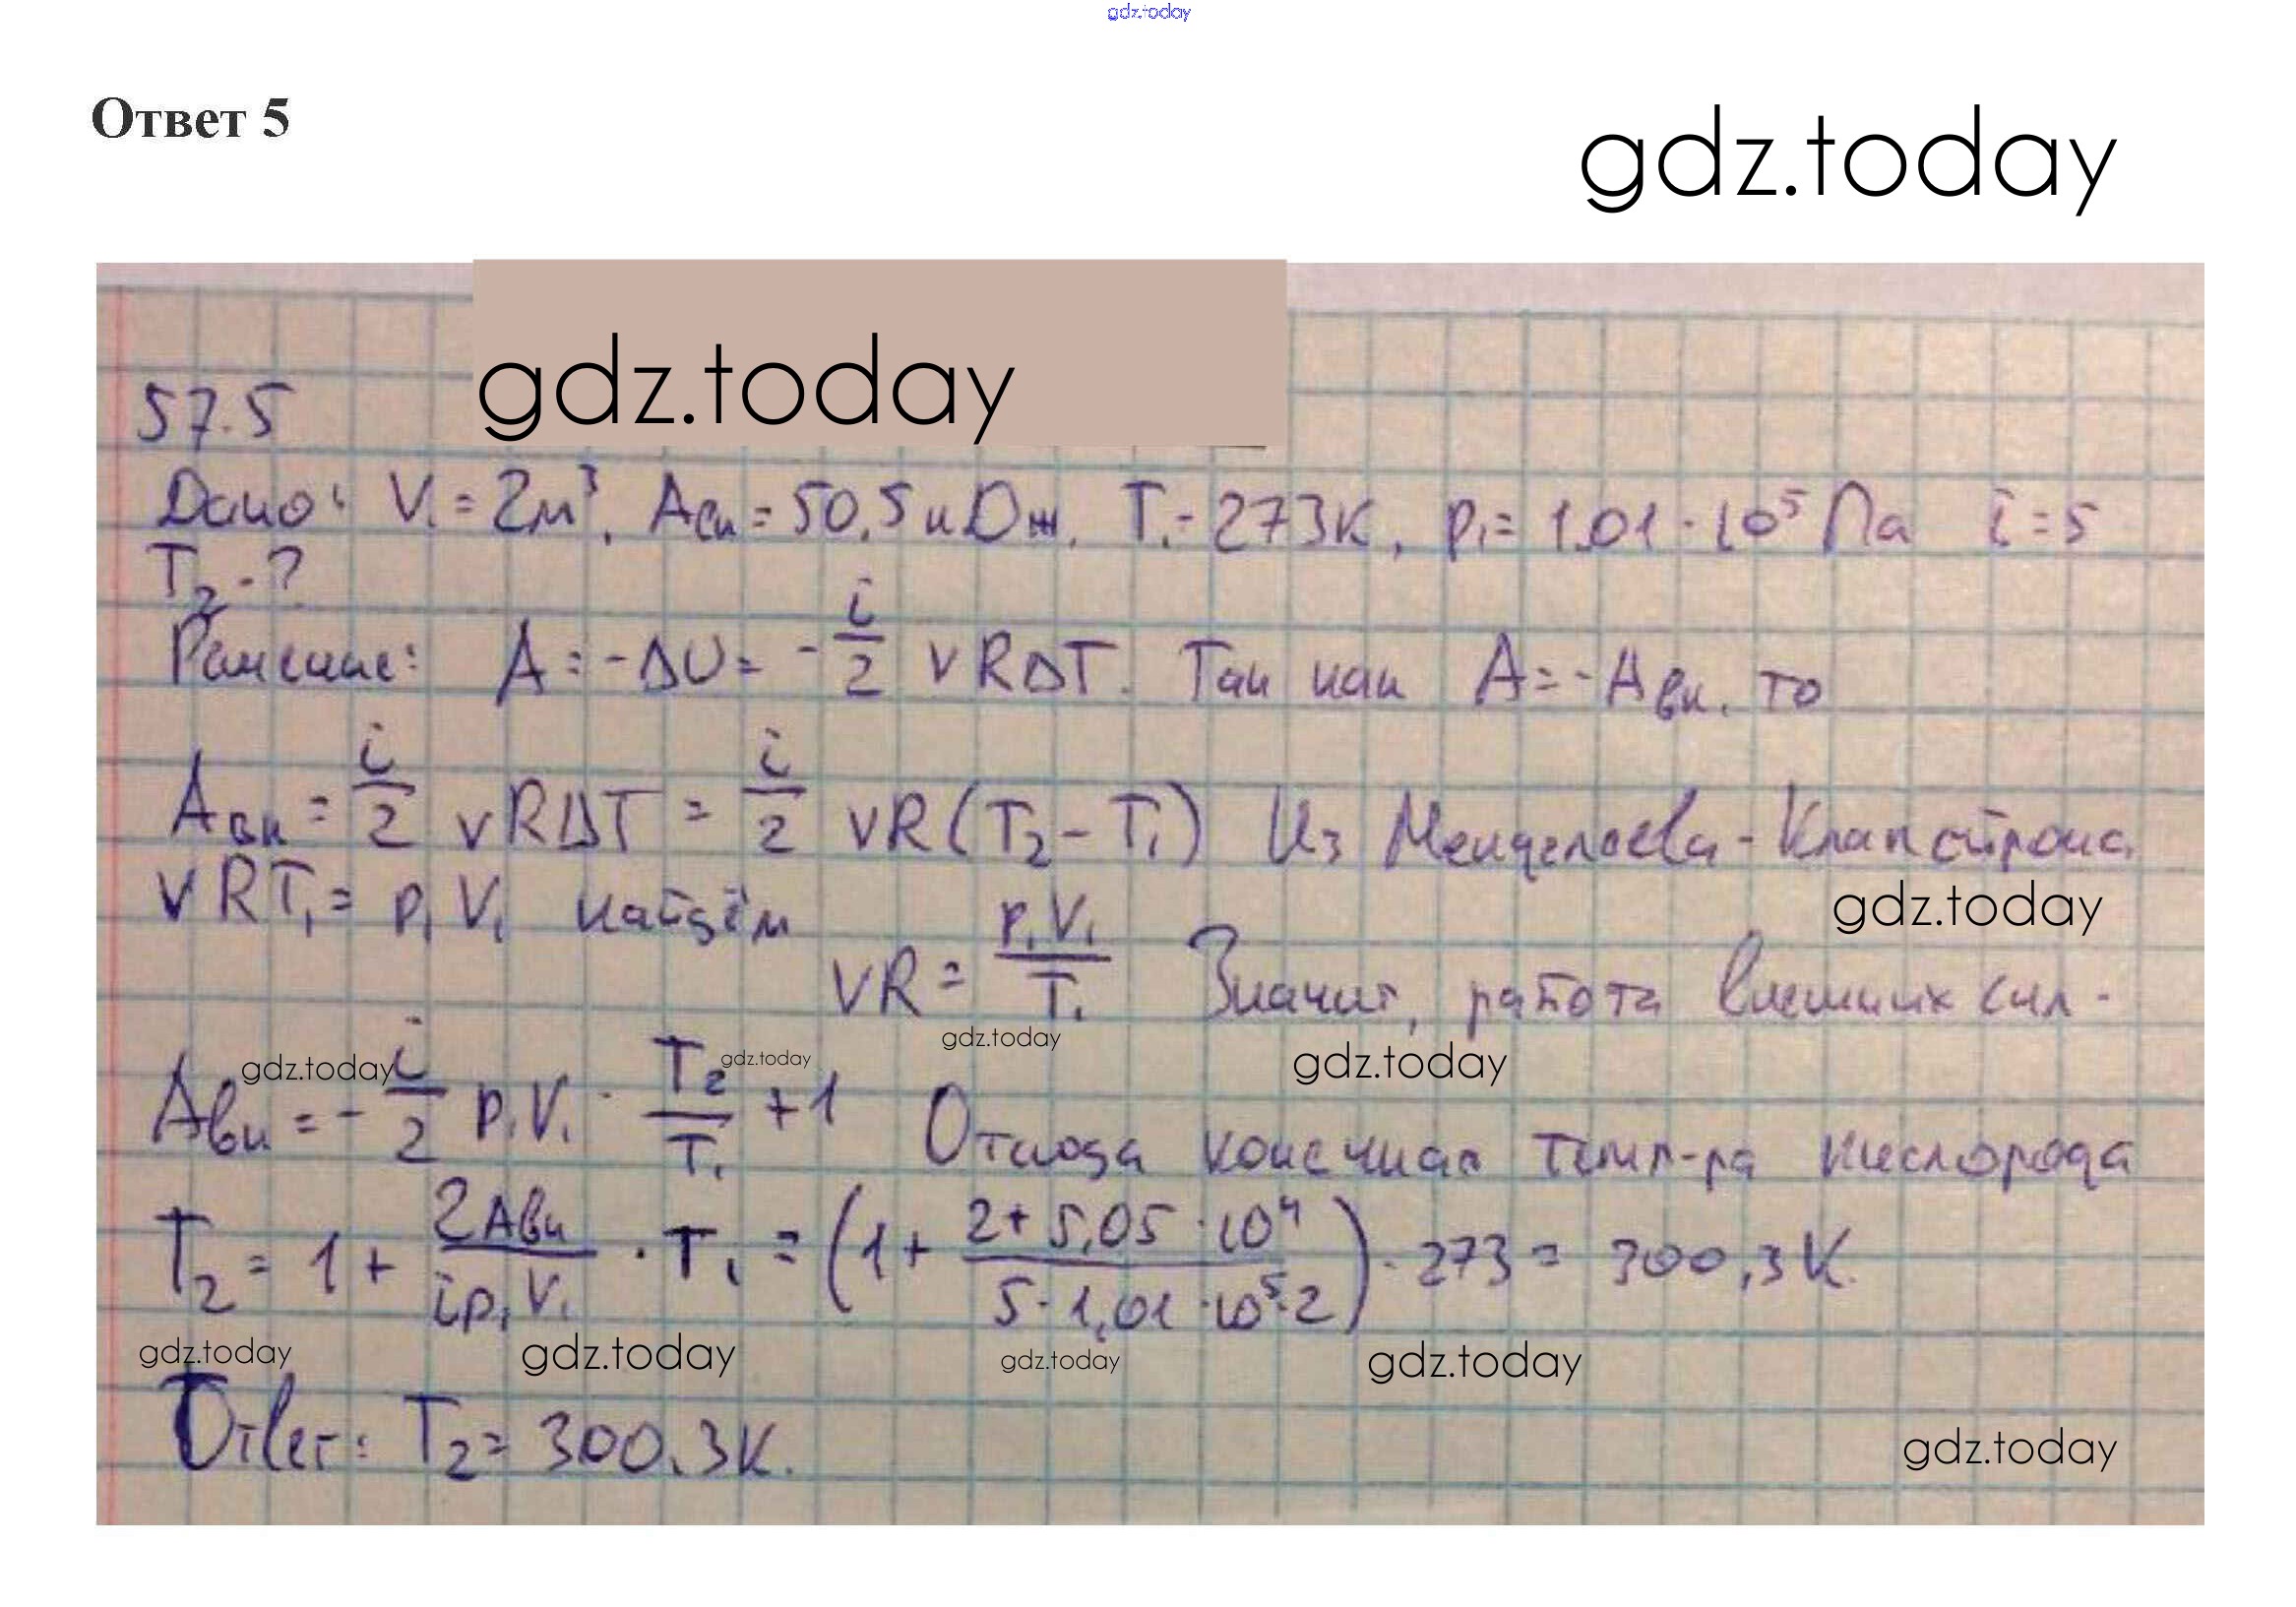 gdz.today
Ответ 5
gdz.today
gdz.today
57.5
Дано: V₁ = 2м³, Aвн = 50,5 кДж, T₁ = 273К, p₁ = 1,01 · 10⁵ Па i = 5
T₂ - ?
Решение: A = -ΔU = - i/2 νRΔT. Так как A = -Aвн, то
Aвн = i/2 νRΔT = i/2 νR(T₂ - T₁) Из Менделеева-Клапейрона
νRT₁ = p₁V₁ найдём νR = p₁V₁/T₁ Значит, работа внешних сил -
gdz.today
gdz.today
gdz.today
gdz.today
gdz.today
Aвн = - i/2 p₁V₁ · T₂/T₁ + 1 Отсюда конечная темп-ра кислорода
T₂ = 1 + 2Aвн/ip₁V₁ · T₁ = (1 + 2+5,05·10⁴/5·1,01·10⁵·2) · 273 = 300,3 К.
gdz.today
gdz.today
gdz.today
gdz.today
Ответ: T₂ = 300,3К.
gdz.today